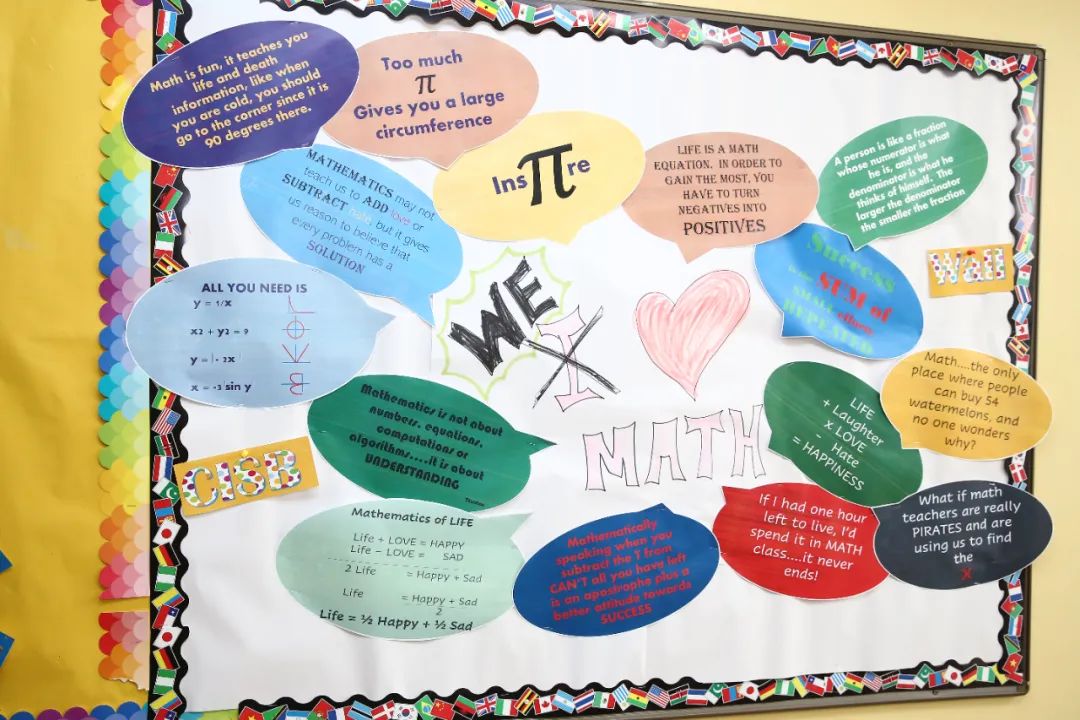 Math is fun, it teaches you
life and death
information, like when
you are cold, you should
go to the corner since it is
90 degrees there.
Too much
π
Gives you a large
circumference
Insπre
LIFE IS A MATH
EQUATION. IN ORDER TO
GAIN THE MOST, YOU
HAVE TO TURN
NEGATIVES INTO
POSITIVES
A person is like a fraction
whose numerator is what
he is, and the
denominator is what he
thinks of himself. The
larger the denominator
the smaller the fraction
MATHEMATICS may not
teach us to ADD love or
SUBTRACT hate, but it gives
us reason to believe that
every problem has a
SOLUTION
Success
is the SUM of
SMALL efforts
REPEATED
Wall
ALL YOU NEED IS
y = 1/x
x2 + y2 = 9
y = |- 2x|
x = -3|sin y
WE
I
MATH
Mathematics is not about
numbers, equations,
computations or
algorithms....it is about
UNDERSTANDING
LIFE
+ Laughter
x LOVE
- Hate
= HAPPINESS
Math....the only
place where people
can buy 54
watermelons, and
no one wonders
why?
CISB
Mathematics of LIFE
Life + LOVE = HAPPY
Life - LOVE = SAD
2 Life = Happy + Sad
Life = Happy + Sad
2
Life = ½ Happy + ½ Sad
Mathematically
speaking when you
subtract the T from
CAN'T all you have left
is an apostrophe plus a
better attitude towards
SUCCESS
If I had one hour
left to live, I'd
spend it in MATH
class....it never
ends!
What if math
teachers are really
PIRATES and are
using us to find
the
X